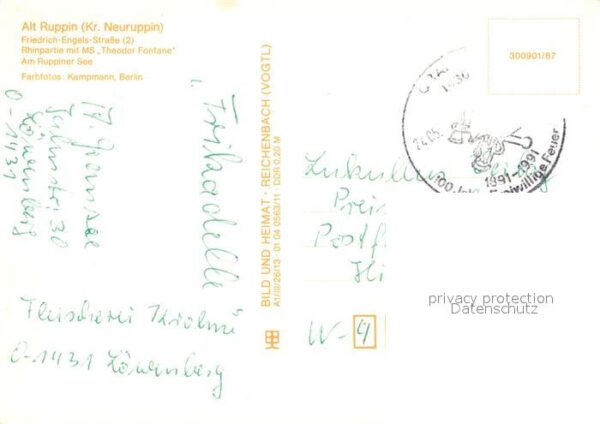 Alt Ruppin (Kr. Neuruppin)
Friedrich-Engels-Straße (2)
Rhinpartie mit MS „Theodor Fontane"
Am Ruppiner See
Farbfotos: Kampmann, Berlin
300901/87
1430
24.05.
1891-1991
100 Freiwillige Feuer
BILD UND HEIMAT · REICHENBACH (VOGTL)
A1/III/26/13 · 01 04 0563/11 DDR 0,20 M
1. Frikadelle
30
O-1431
Löwenberg
Fleischerei
O-1431 Löwenberg
Lukullus
Prei
Postf
Hi
W-4
privacy protection
Datenschutz